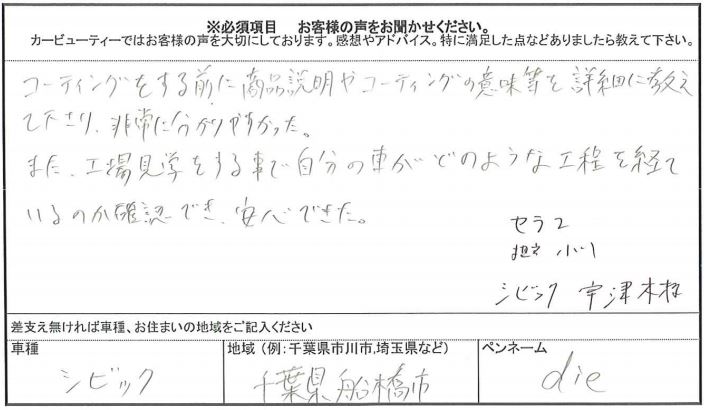 ※必須項目　お客様の声をお聞かせください。
カービューティーではお客様の声を大切にしております。感想やアドバイス。特に満足した点などありましたら教えて下さい。
コーティングをする前に商品説明やコーティングの意味等を詳細に教え
て下さり、非常に分かりやすかった。
また、工場見学をする事で自分の車がどのような工程を経て
いるのか確認でき、安心できた。
セラ2
担当 小川
シビック 宇津木様
差支え無ければ車種、お住まいの地域をご記入ください
車種
シビック
地域（例：千葉県市川市,埼玉県など）
千葉県船橋市
ペンネーム
die